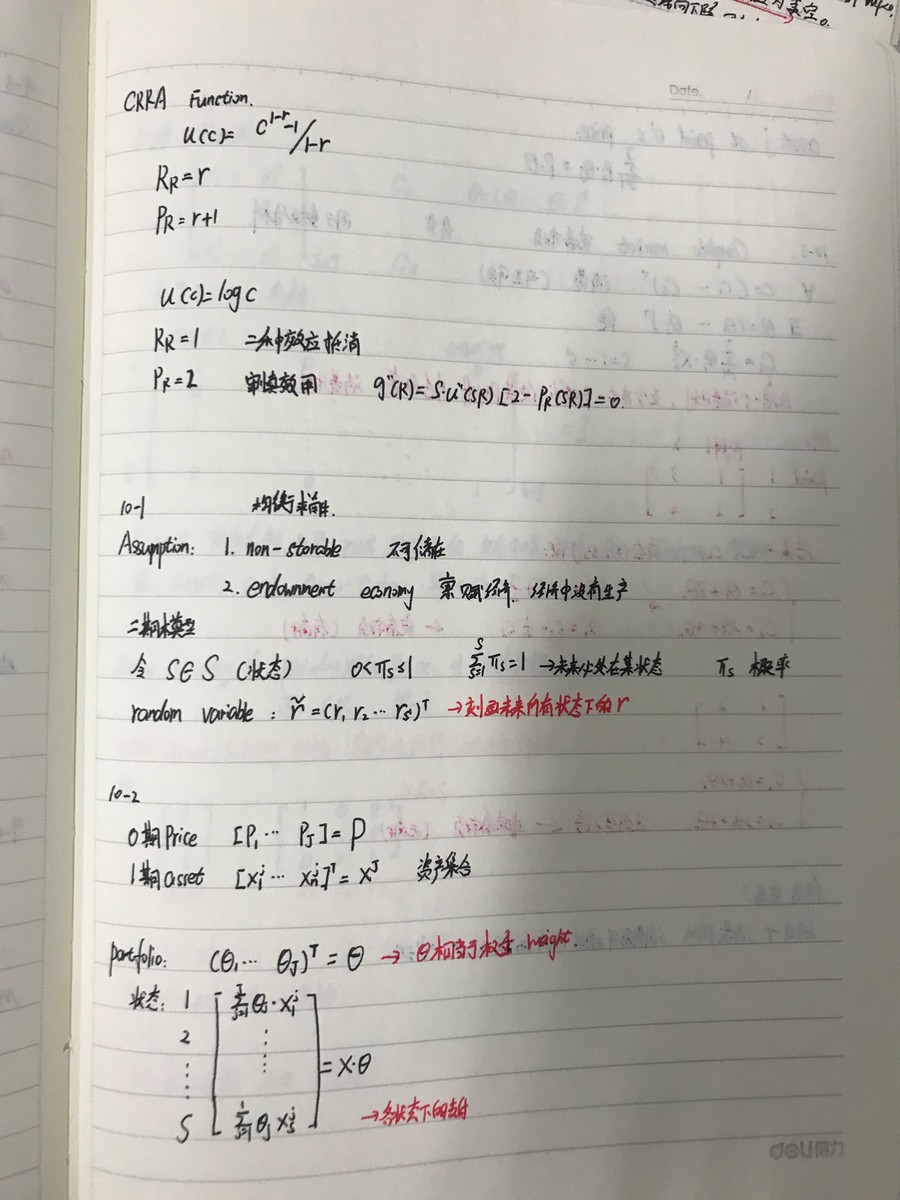 Date. /
CRRA Function.
u(c)= c^{1-r}-1/1-r
R_R=r
P_R=r+1
u(c)=log c
R_R=1 二种效应抵消
P_R=2 审慎效用 g''(R)=S·u''(SR)[2-P_R(SR)]=0.
10-1 均衡求解.
Assumption: 1. non-storable 不可储存
2. endownment economy 禀赋经济. 经济中没有生产
二期模型
令 S∈S (状态) 0<π_s≤1 \sum_{s=1}^{S} π_s=1 →未来必处在某状态 π_s 概率
random variable: \tilde{r}=(r_1 r_2 ... r_s)^T →刻画未来所有状态下的r
10-2
0期price [P_1 ... P_J]=P
1期asset [x_1^j ... x_n^j]^T = X^J 资产集合
portfolio: (θ_1 ... θ_J)^T = θ → θ相当于权重 weight.
状态: 1 \sum_{j=1}^{J} θ_j·x_1^j
2 ⋮
⋮ ⋮ = X·θ
S \sum_{j=1}^{J} θ_j x_s^j →各状态下的支付
deli得力